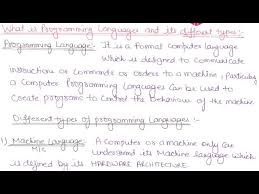 What is Programming Languages and its different types:-
Programming Language:- It is a formal computer language
which is designed to communicate
instructions or commands or orders to a machine, particularly
a Computer. Programming Languages can be used to
Create programs to control the behaviour of the machine
Different types of programming Languages:-
1) Machine Language: A Computer or a machine only can
M/C
understand its Machine Language which
is defined by its HARDWARE ARCHITECTURE.